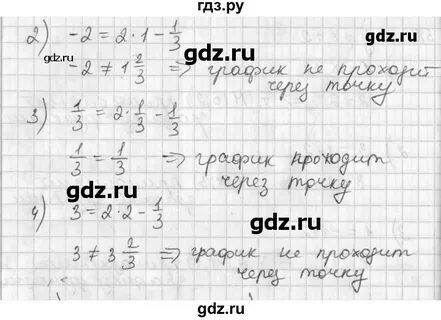 гдз.ру
2) -2 = 2·1 - 1/3
gdz.ru
gdz.ru
-2 ≠ 1 2/3 => график не проходит
через точку
3) 1/3 = 2·1/3 - 1/3
1/3 = 1/3 => график проходит
через точку
gdz.ru
gdz.ru
4) 3 = 2·2 - 1/3
3 ≠ 3 2/3 => график не проходит
через точку
gdz.ru
gdz.ru